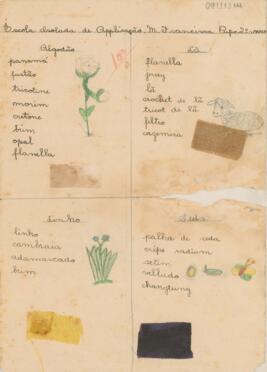 Escola Isolada de Applicação. M. Francisca Pupo 2º anno
100
Algodão
panamá
fustão
tricoline
morim
cretone
brim
opal
flanella
Lã
flanella
jersey
lã
crochet de lã
tricot de lã
filtro
cazemira
Linho
linho
cambraia
adamascado
brim
Seda
palha de seda
crepe radium
setim
velludo
changtung